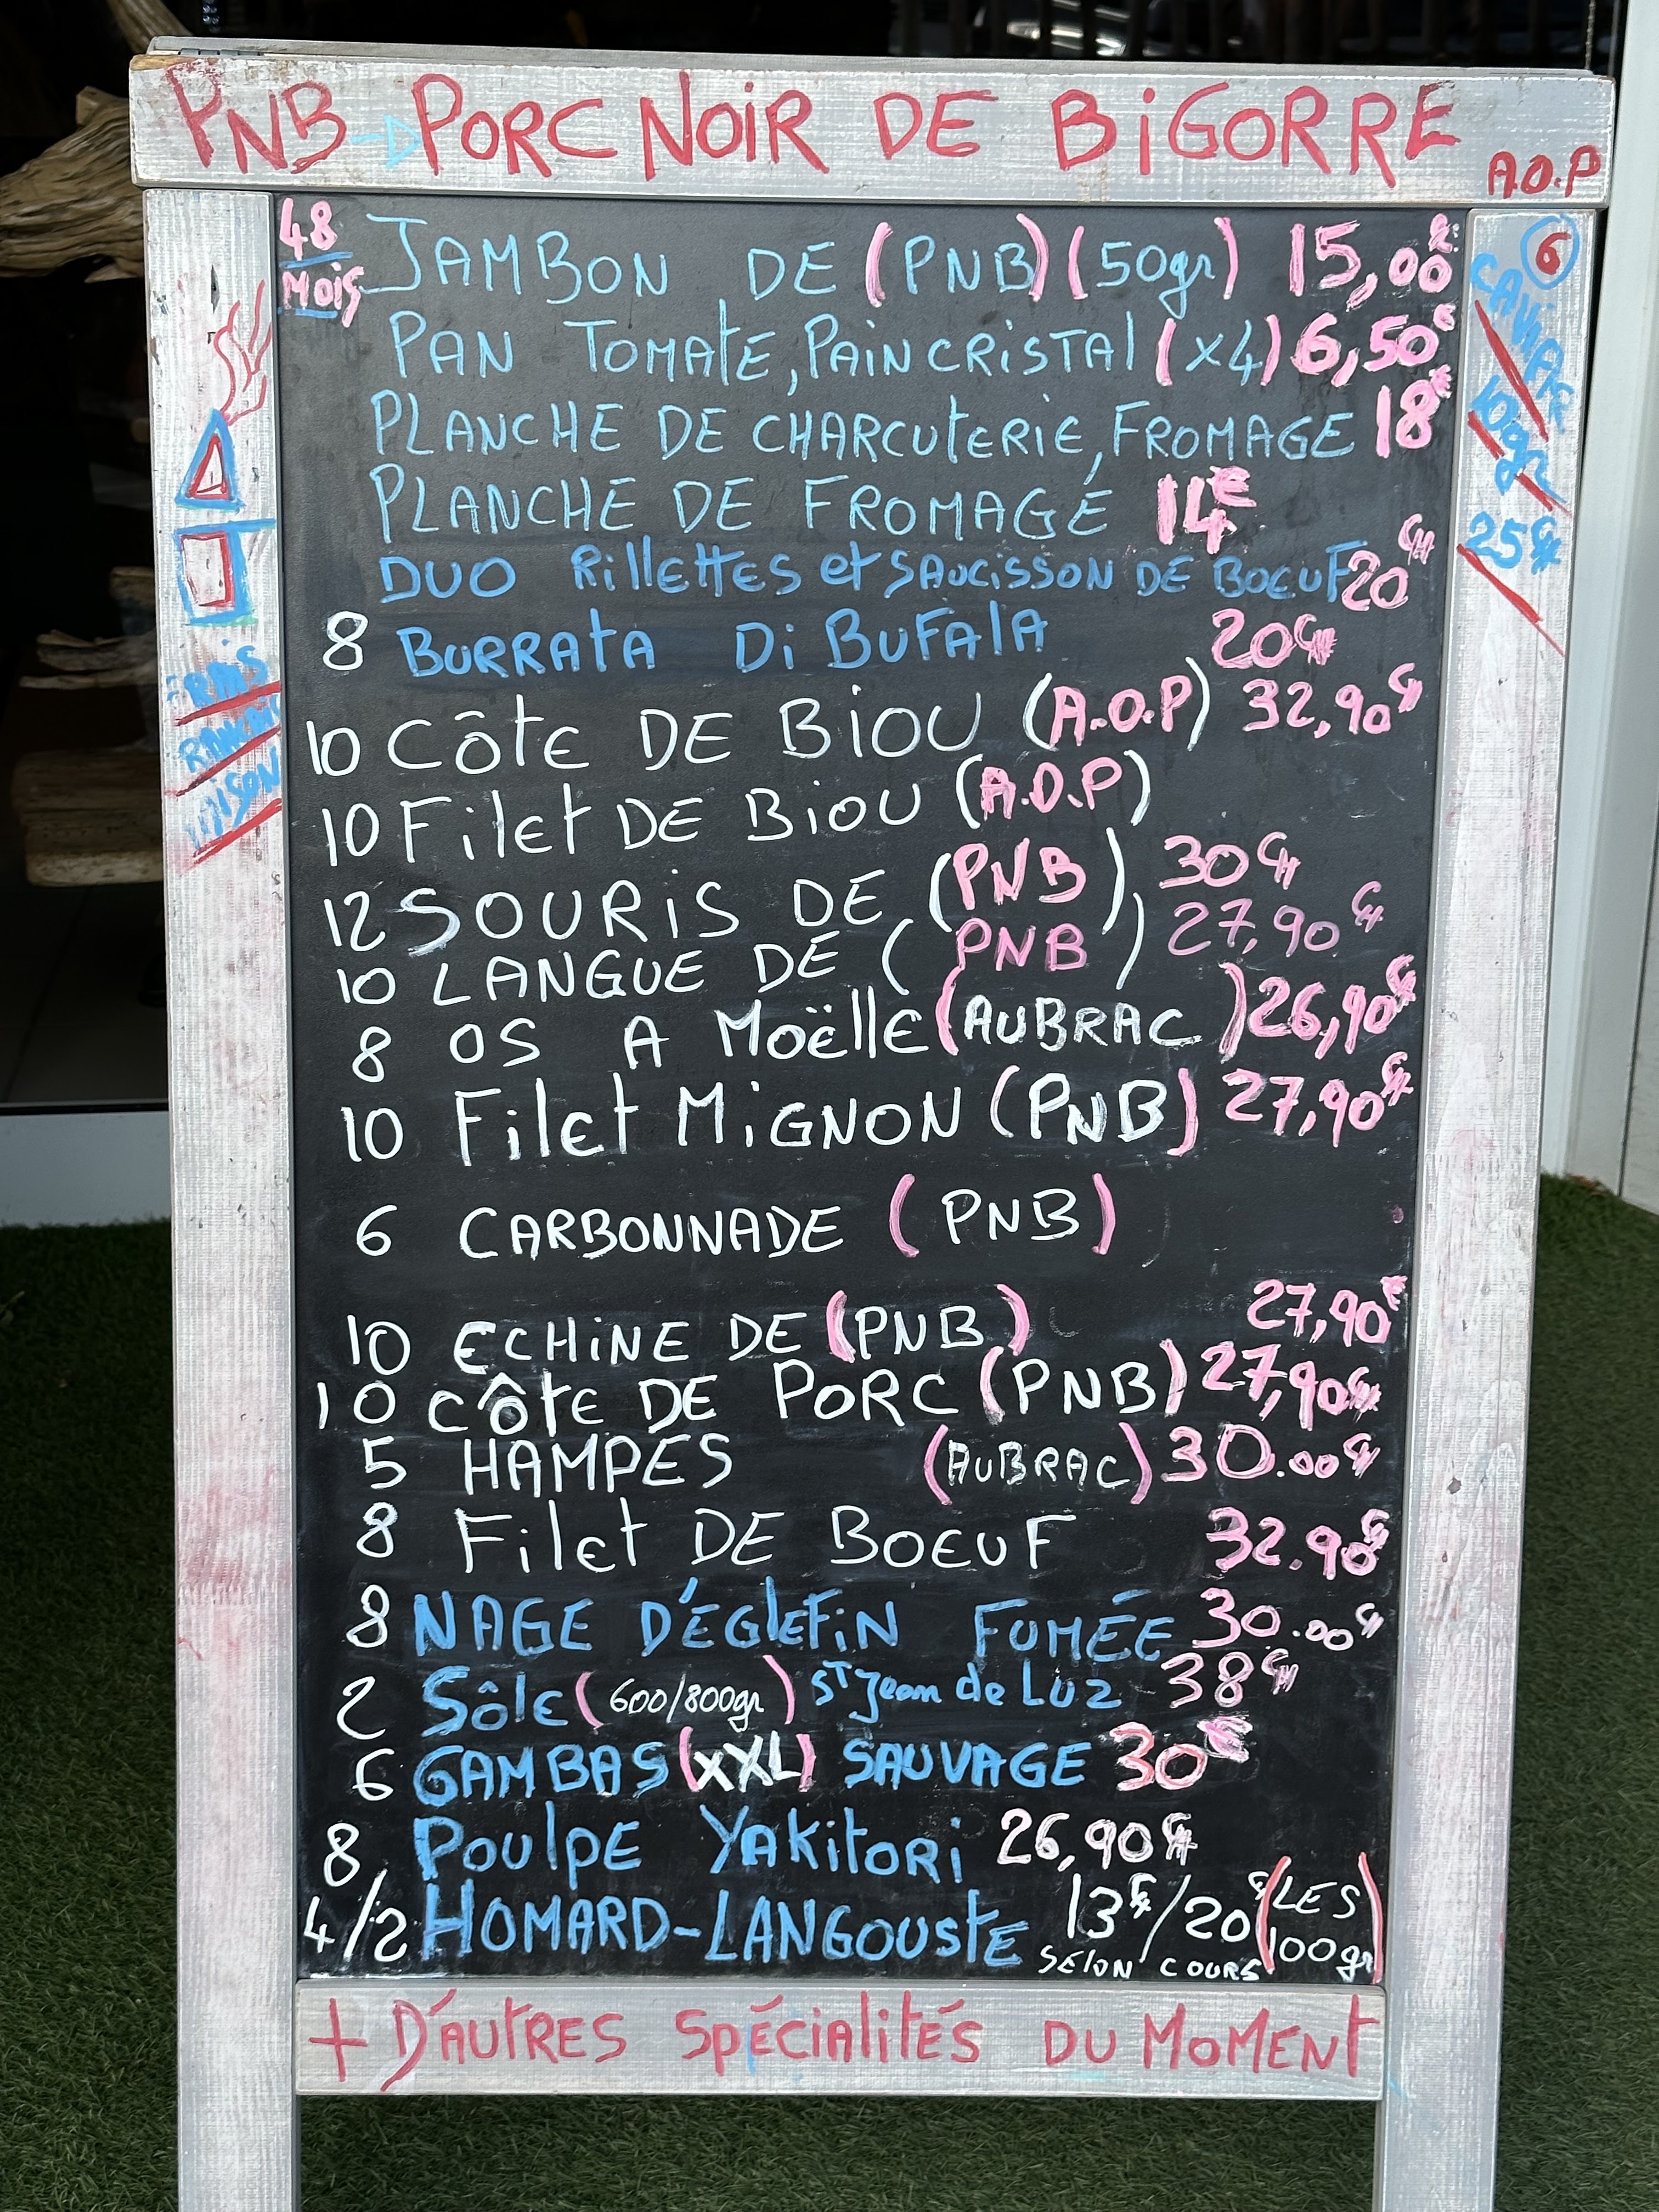 PNB → PORC NOIR DE BIGORRE A.O.P
48 MOIS JAMBON DE (PNB) (50gr) 15,00€
PAN TOMATE, PAIN CRISTAL (x4) 6,50€
PLANCHE DE CHARCUTERIE, FROMAGE 18€
PLANCHE DE FROMAGE 14€
DUO RILLETTES et SAUCISSON DE BOEUF 20€
8 BURRATA Di BUFALA 20€
10 CÔTE DE BIOU (A.O.P) 32,90€
10 FILET DE BIOU (A.O.P)
12 SOURIS DE (PNB) 30€
10 LANGUE DE (PNB) 27,90€
8 OS A MOËLLE (AUBRAC) 26,90€
10 FILET MIGNON (PNB) 27,90€
6 CARBONNADE (PNB)
10 ECHINE DE (PNB) 27,90€
10 CÔTE DE PORC (PNB) 27,90€
5 HAMPES (AUBRAC) 30.00€
8 FILET DE BOEUF 32.90€
8 NAGE D'ÉGLEFIN FUMÉE 30.00€
2 SÔLE (600/800gr) ST Jean de Luz 38€
6 GAMBAS (XXL) SAUVAGE 30€
8 POULPE YAKITORI 26,90€
4/2 HOMARD-LANGOUSTE 13€/20€ (LES 100gr)
SELON COURS
+ D'AUTRES SPÉCIALITÉS DU MOMENT
6
CAVIAR
10gr
25€
MAISON